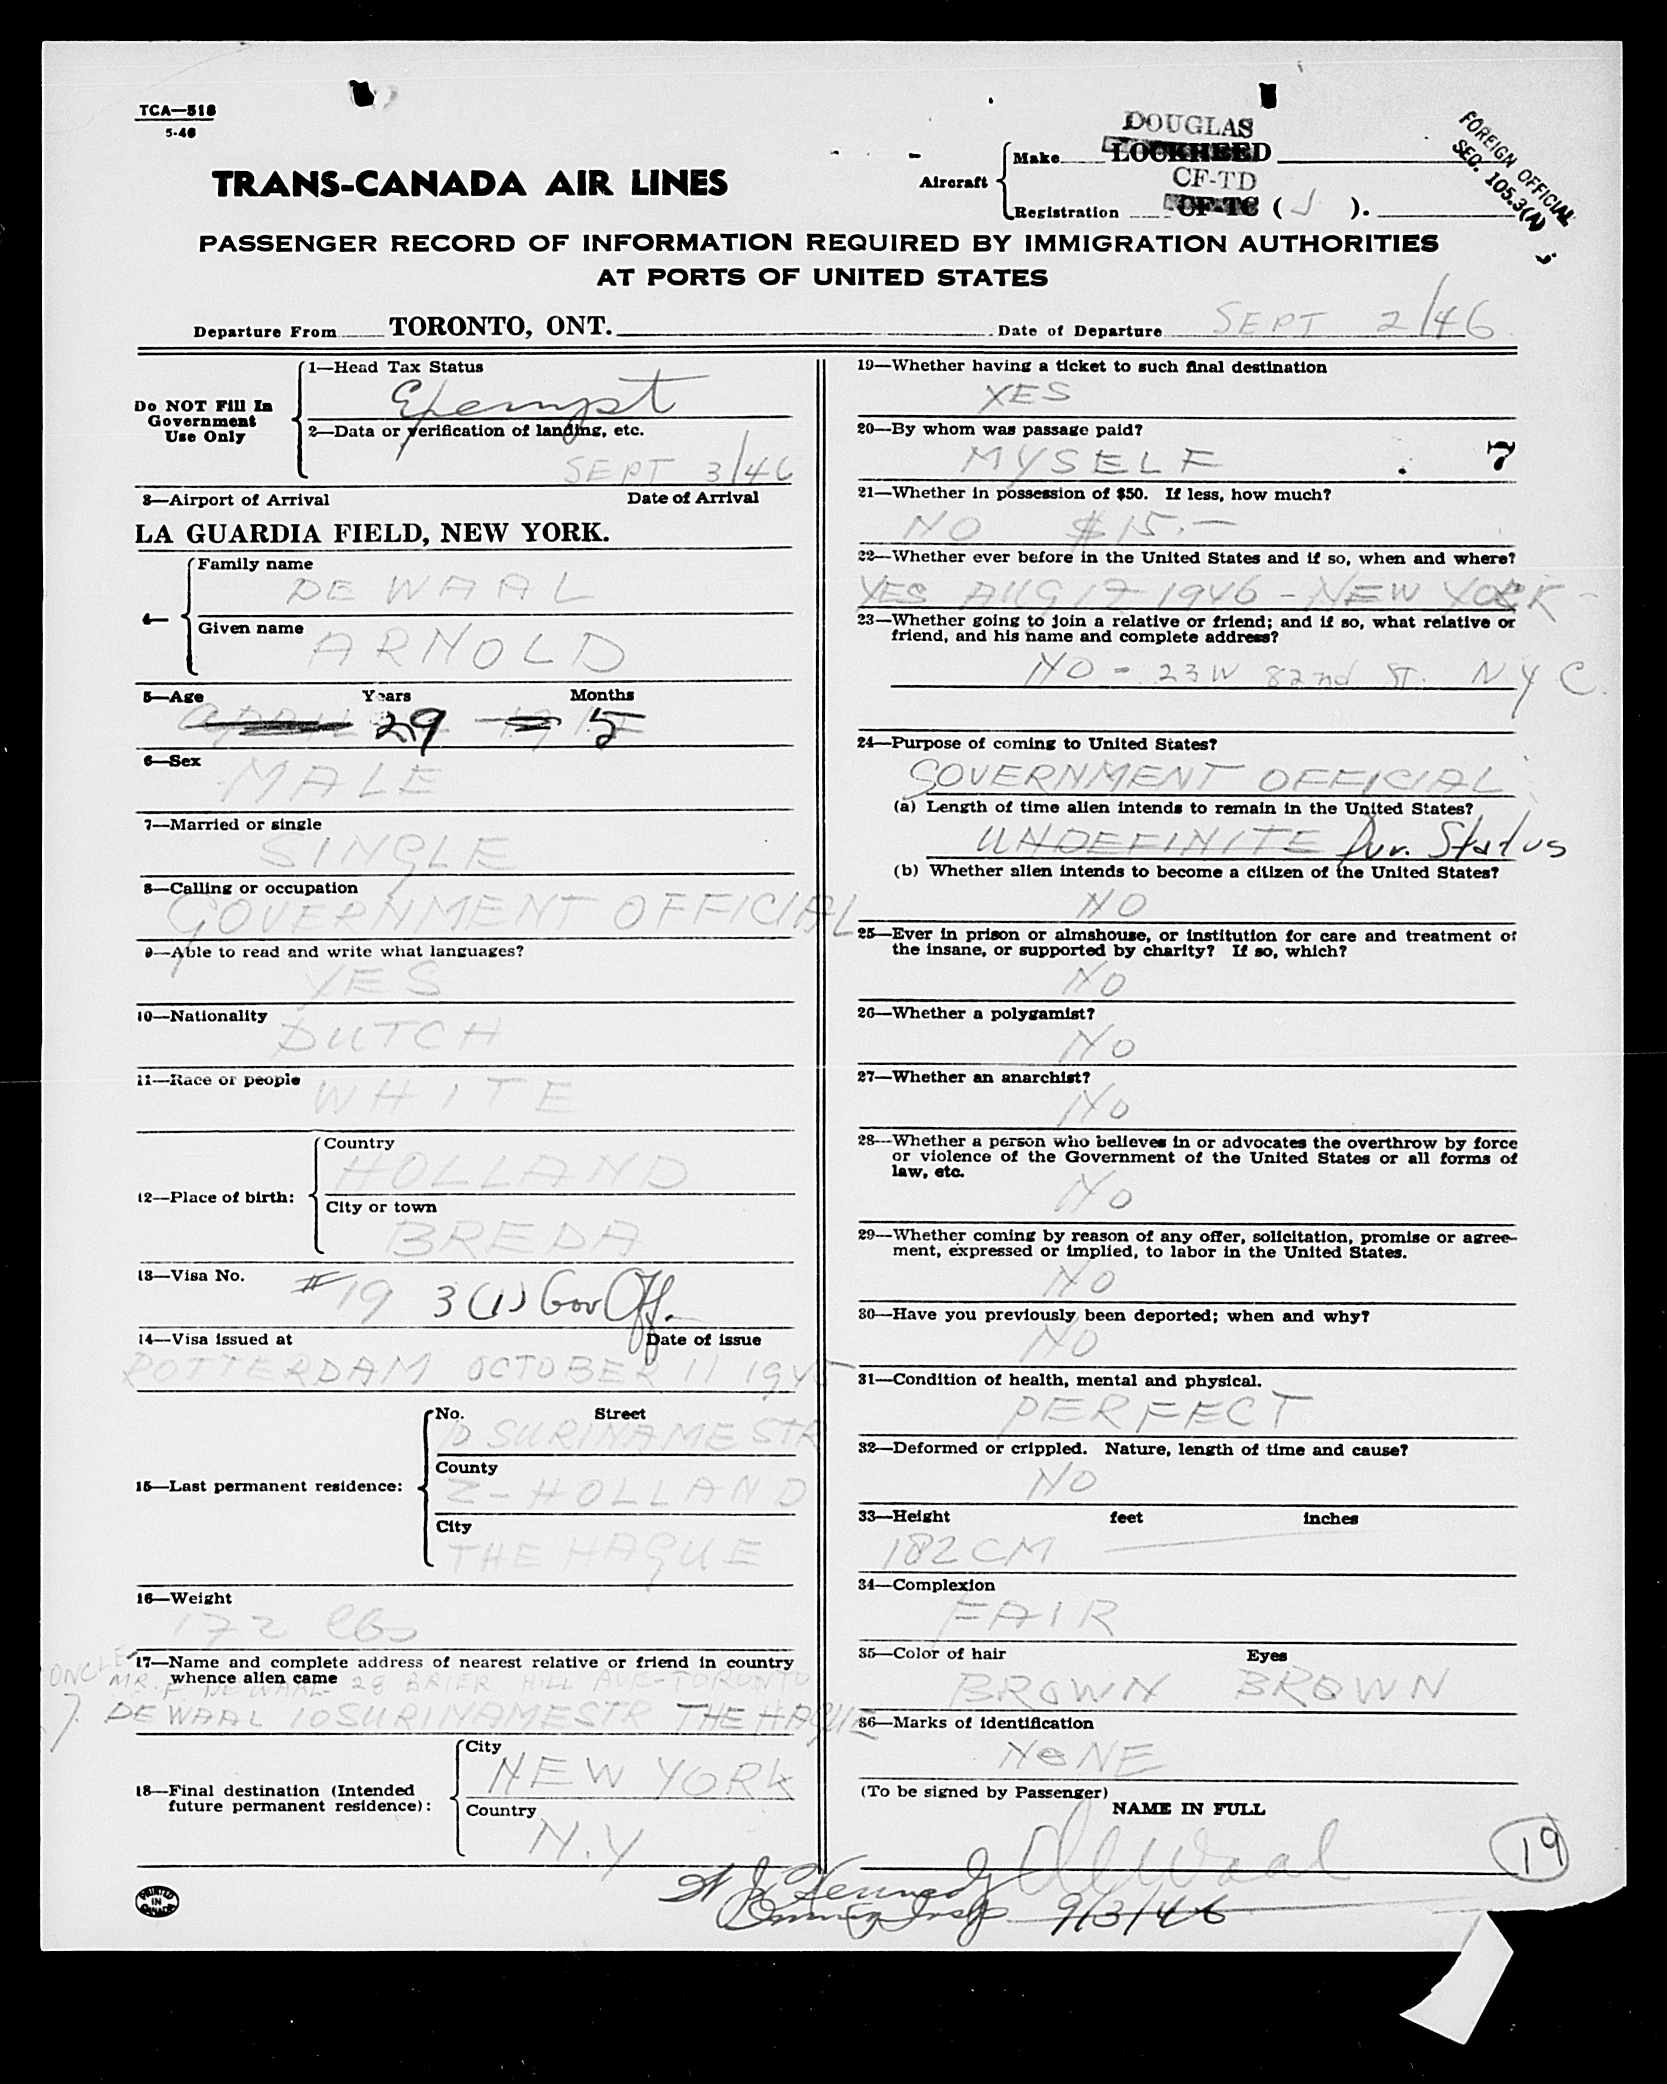 TCA—518
5-46
DOUGLAS
Make LOCKHEED
FOREIGN OFFICIAL
SEC. 105.3(A)
TRANS-CANADA AIR LINES
Aircraft
CF-TD
Registration CF-TC ( J ).
PASSENGER RECORD OF INFORMATION REQUIRED BY IMMIGRATION AUTHORITIES
AT PORTS OF UNITED STATES
Departure From TORONTO, ONT. Date of Departure SEPT 2/46
Do NOT Fill In
Government
Use Only
1—Head Tax Status
Exempt
2—Data or verification of landing, etc.
SEPT 3/46
3—Airport of Arrival Date of Arrival
LA GUARDIA FIELD, NEW YORK.
4—
Family name
DE WAAL
Given name
ARNOLD
5—Age Years Months
29 5
6—Sex
MALE
7—Married or single
SINGLE
8—Calling or occupation
GOVERNMENT OFFICIAL
9—Able to read and write what languages?
YES
10—Nationality
DUTCH
11—Race or people
WHITE
12—Place of birth:
Country
HOLLAND
City or town
BREDA
13—Visa No.
#19 3(1) Gov Off.
14—Visa issued at Date of issue
ROTTERDAM OCTOBER 11 1945
15—Last permanent residence:
No. Street
10 SURINAMESTR
County
Z-HOLLAND
City
THE HAGUE
16—Weight
172 lbs
17—Name and complete address of nearest relative or friend in country
whence alien came
ONCLE MR. F DE WAAL 28 BRIER HILL AVE-TORONTO
J. DE WAAL 10 SURINAMESTR THE HAGUE
18—Final destination (Intended
future permanent residence):
City
NEW YORK
Country
N.Y
PRINTED
IN
CANADA
19—Whether having a ticket to such final destination
YES
20—By whom was passage paid?
MYSELF 7
21—Whether in possession of $50. If less, how much?
NO $15.—
22—Whether ever before in the United States and if so, when and where?
YES AUG 17 1946 - NEW YORK -
23—Whether going to join a relative or friend; and if so, what relative or
friend, and his name and complete address?
NO - 23 W 82nd ST. NYC.
24—Purpose of coming to United States?
GOVERNMENT OFFICIAL
(a) Length of time alien intends to remain in the United States?
UNDEFINITE Dur. Status
(b) Whether alien intends to become a citizen of the United States?
NO
25—Ever in prison or almshouse, or institution for care and treatment of
the insane, or supported by charity? If so, which?
NO
26—Whether a polygamist?
NO
27—Whether an anarchist?
NO
28—Whether a person who believes in or advocates the overthrow by force
or violence of the Government of the United States or all forms of
law, etc.
NO
29—Whether coming by reason of any offer, solicitation, promise or agree-
ment, expressed or implied, to labor in the United States.
NO
30—Have you previously been deported; when and why?
NO
31—Condition of health, mental and physical.
PERFECT
32—Deformed or crippled. Nature, length of time and cause?
NO
33—Height feet inches
182 CM
34—Complexion
FAIR
35—Color of hair Eyes
BROWN BROWN
36—Marks of identification
NONE
(To be signed by Passenger)
NAME IN FULL
de Waal
19
Kennedy
Immig Insp 9/3/46